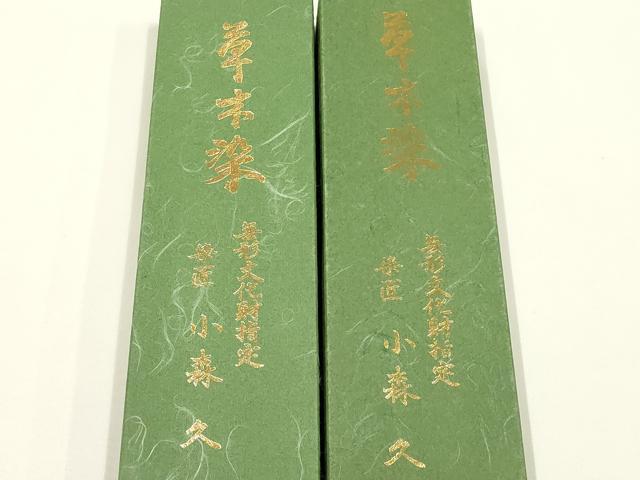 草木染
無形文化財指定
染匠 小森 久
草木染
無形文化財指定
染匠 小森 久